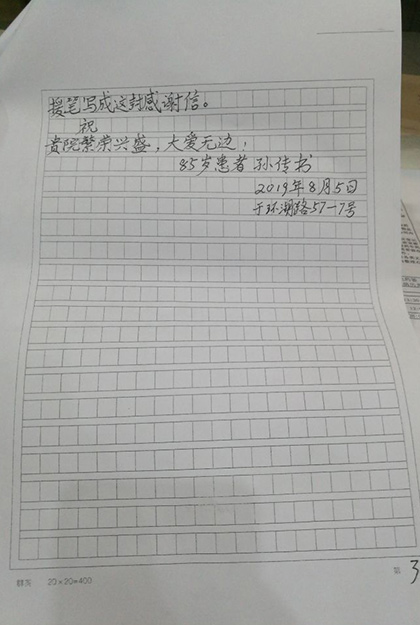 援笔写成这封感谢信。
祝
贵院繁荣兴盛，大爱无边！
85岁患者 孙传书
2019年8月5日
于环湖路57-7号
20×20=400
第 3